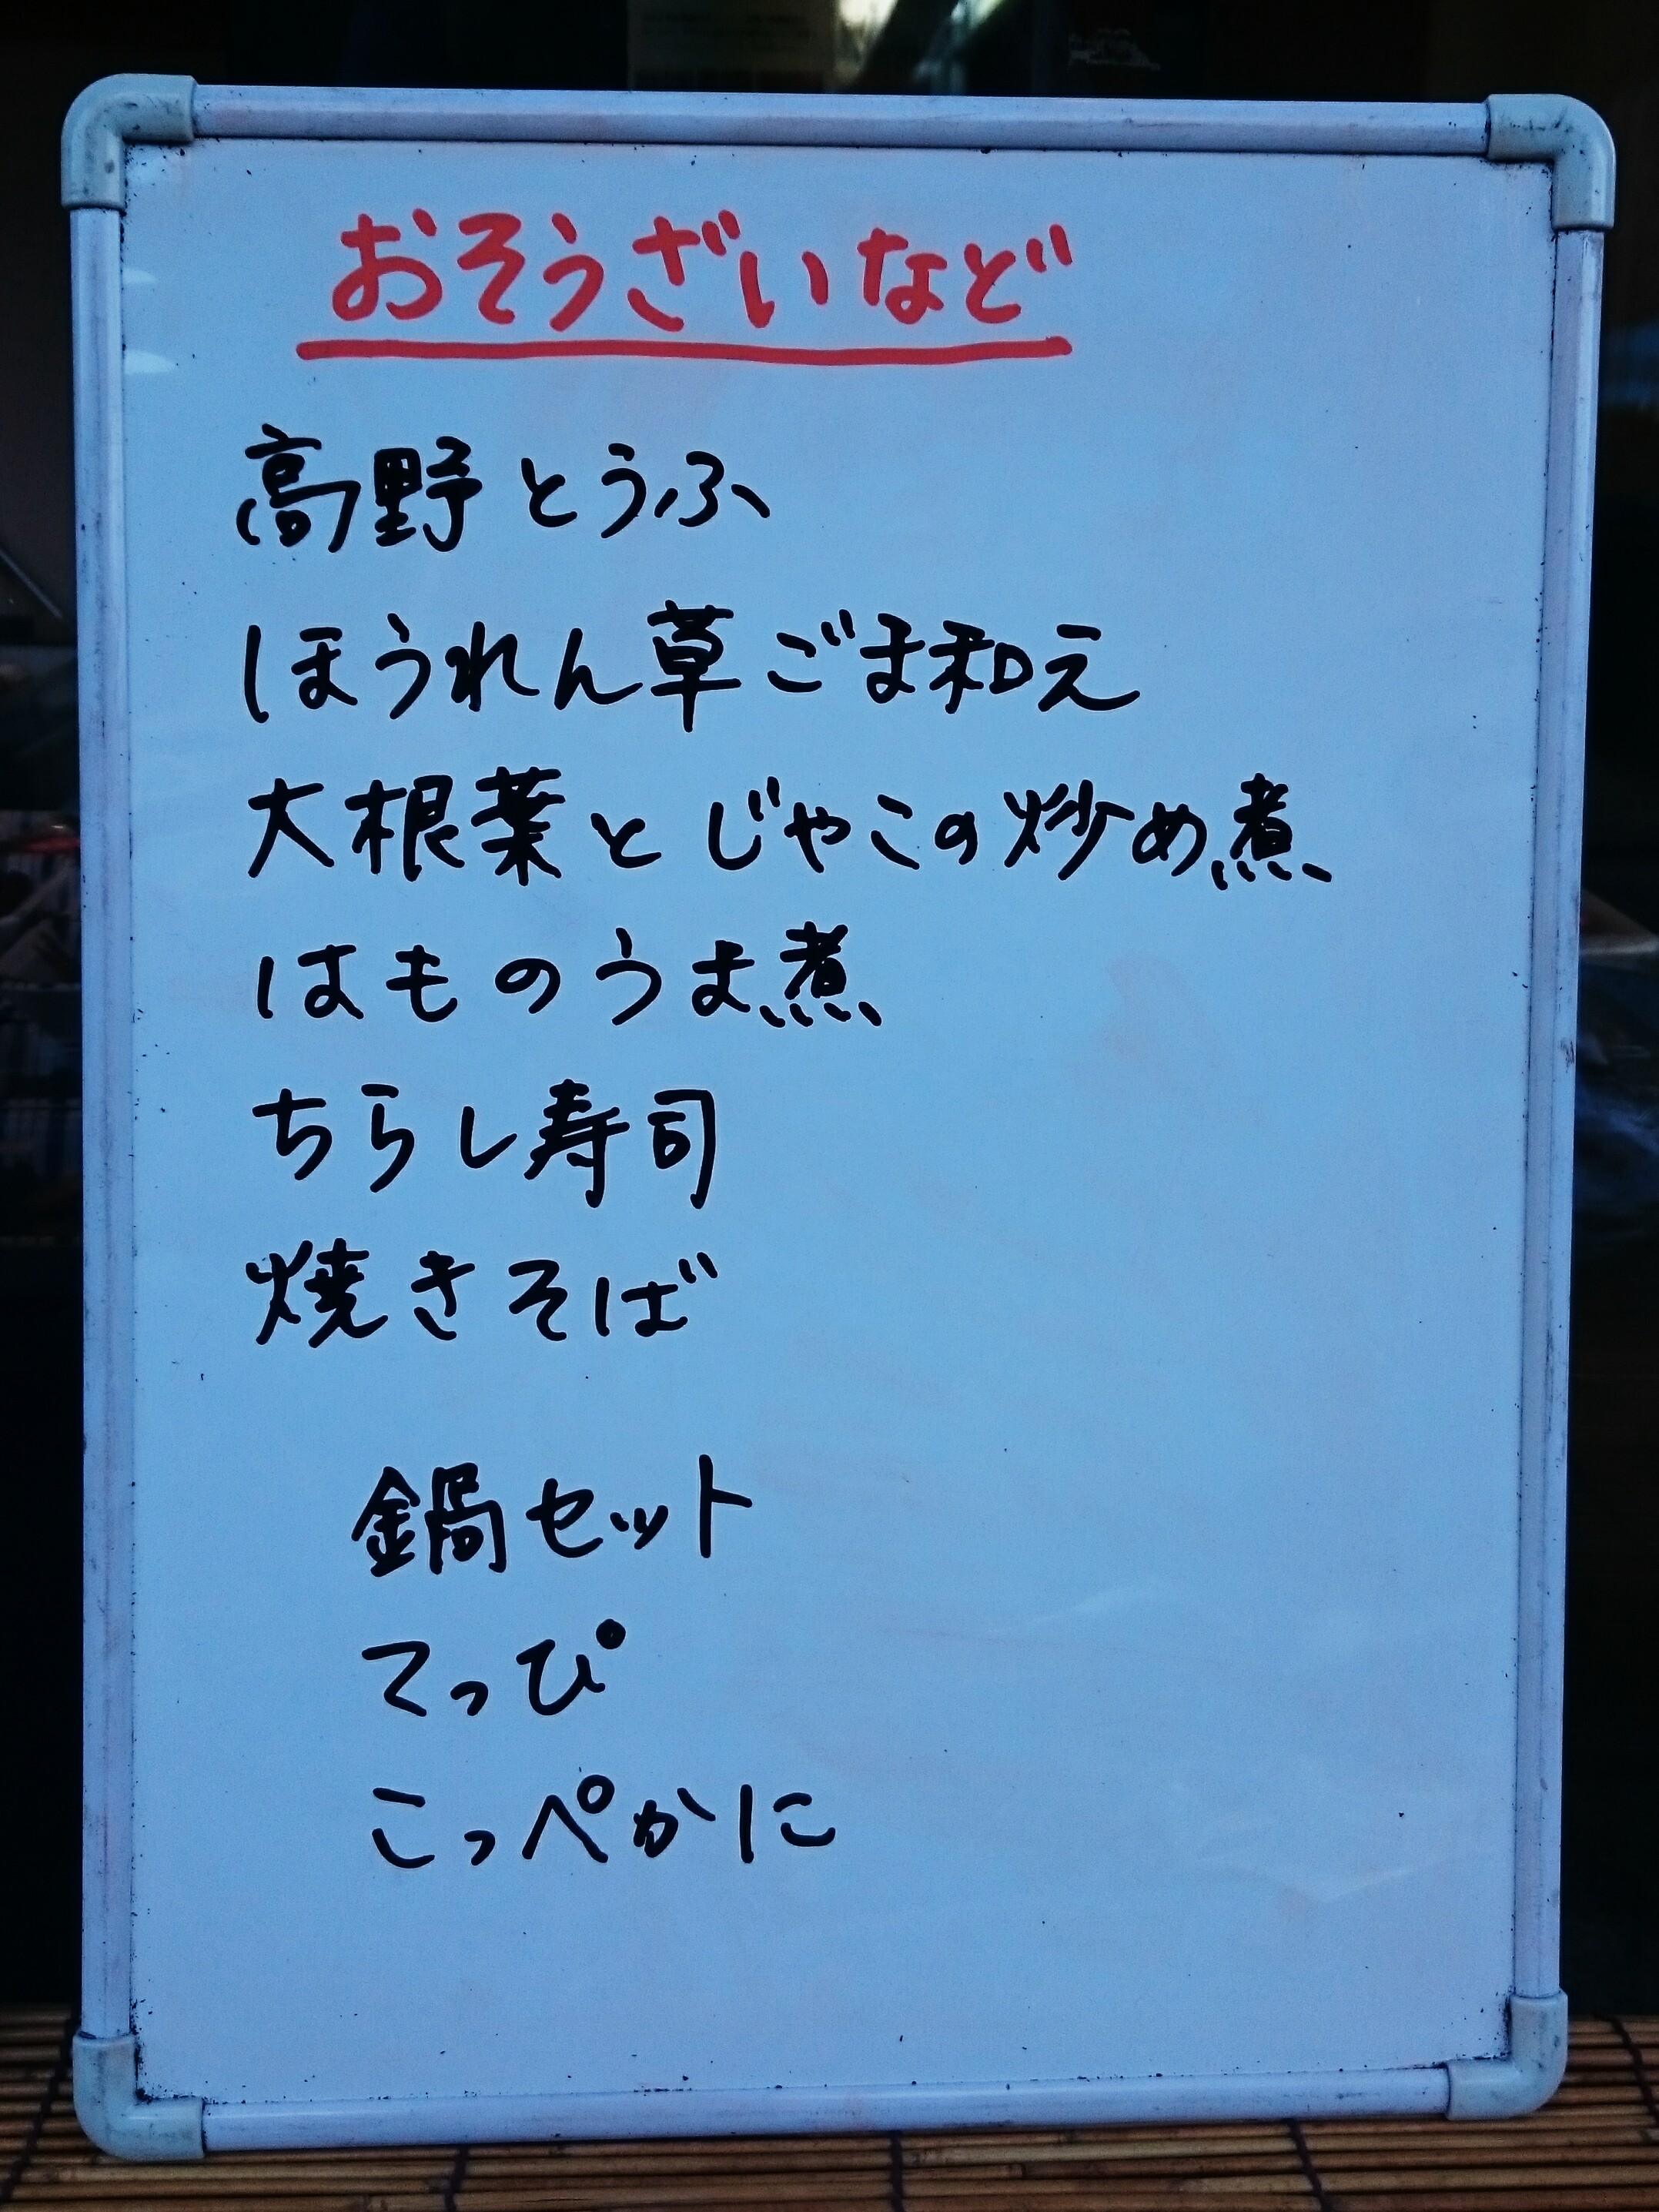 おそうざいなど
高野とうふ
ほうれん草ごま和え
大根葉とじゃこの炒め煮
はものうま煮
ちらし寿司
焼きそば
鍋セット
てっぴ
こっぺかに